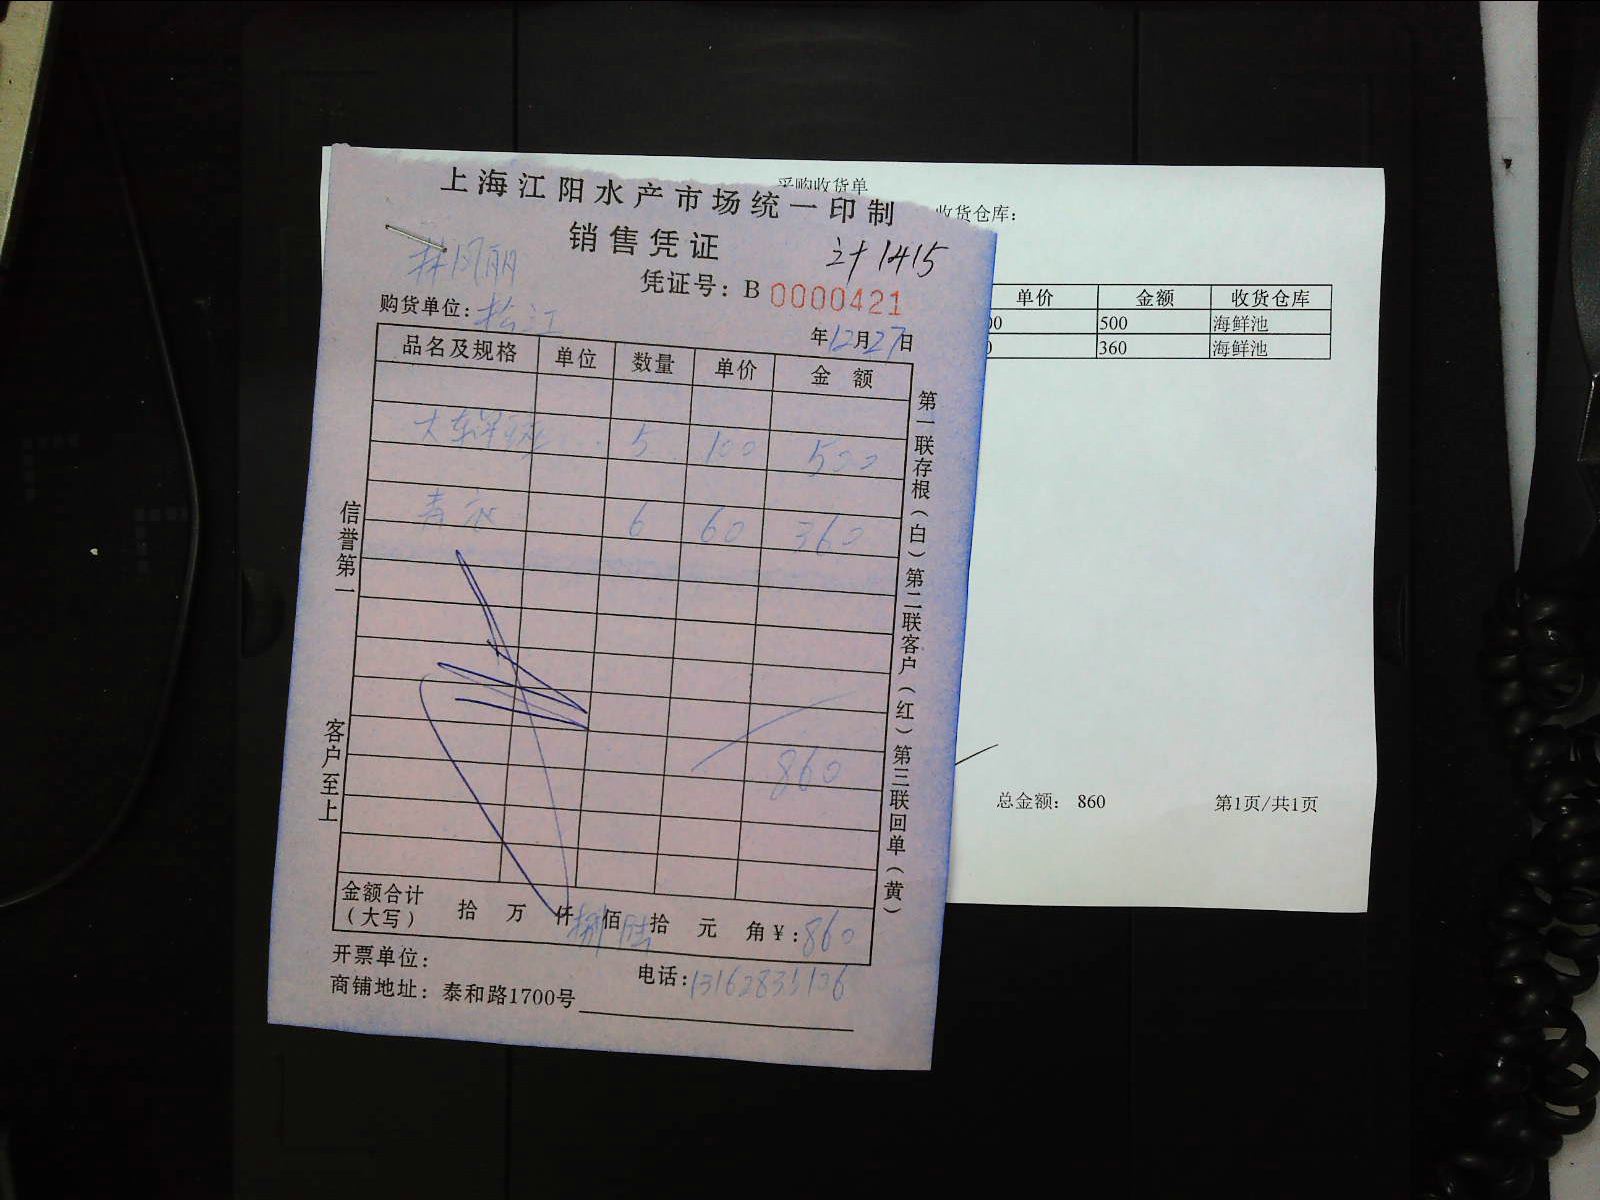 上海江阳水产市场统一印制
销售凭证
计1415
林凤丽
凭证号：B 0000421
购货单位：松江
年12月27日
品名及规格 单位 数量 单价 金额
5 100 500
青衣 6 60 360
860
金额合计（大写） 拾 万 仟 捌佰 陆拾 元 角 ¥：860
开票单位：
电话：
商铺地址：泰和路1700号
信誉第一 客户至上
第一联存根（白）第二联客户（红）第三联回单（黄）
采购收货单
收货仓库：
单价 金额 收货仓库
00 500 海鲜池
0 360 海鲜池
总金额： 860 第1页/共1页